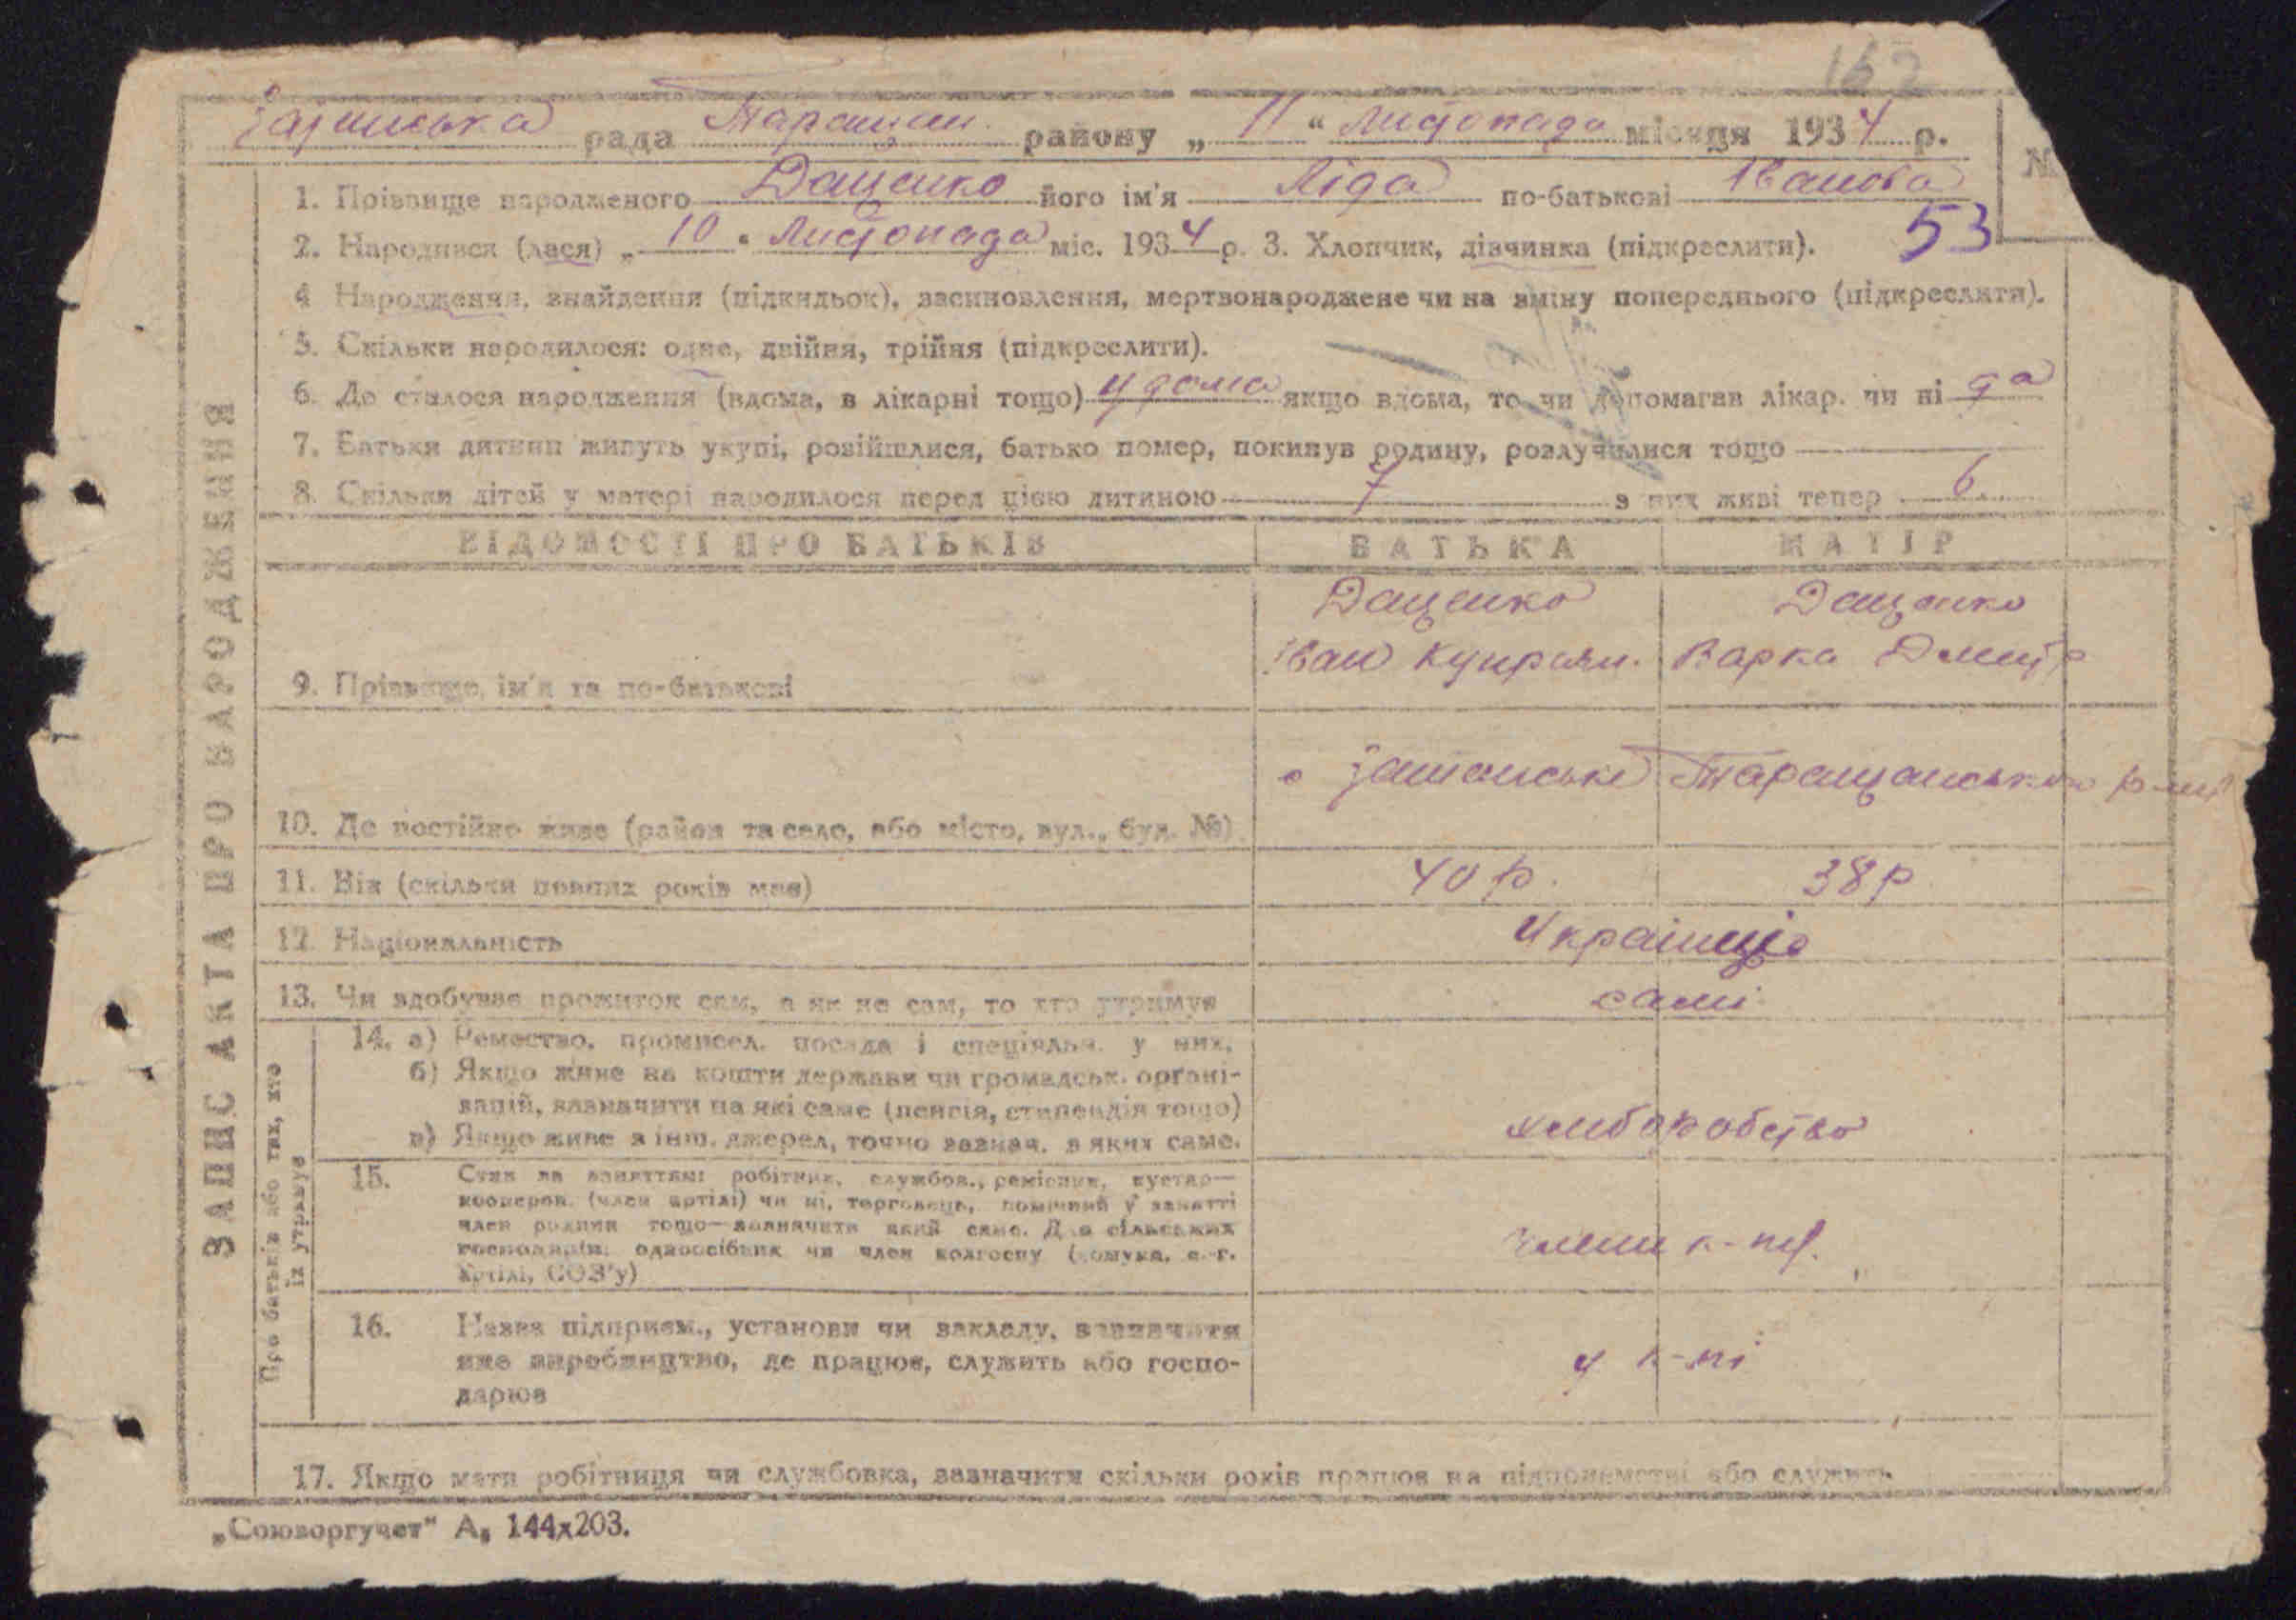 162
рада Таращан. району „ 11 “ Листопада місяця 1934 р.
№
1. Прізвище народженого Даценко його ім'я Ліда по-батькові Іванова
2. Народився (лася) „ 10 “ Листопада міс. 1934 р. 3. Хлопчик, дівчинка (підкреслити).
53
4 Народження, знайдення (підкидьок), засиновлення, мертвонароджене чи на зміну попереднього (підкреслити).
5. Скільки народилося: одне, двійня, трійня (підкреслити).
6. Де сталося народження (вдома, в лікарні тощо) удома якщо вдома, то чи допомагав лікар. чи ні да
7. Батьки дитини живуть укупі, розійшлися, батько помер, покинув родину, розлучилися тощо
8. Скільки дітей у матері народилося перед цією дитиною 7 з них живі тепер 6.
ВІДОМОСТІ ПРО БАТЬКІВ БАТЬКА МАТІР
Даценко Даценко
9. Прізвище, ім'я та по-батькові Іван Куприян. Варка Дмитр
10. Де постійно живе (район та село, або місто, вул., буд. №) Таращанського
11. Вік (скільки повних років має) 40 р. 38 р
12. Національність Українці
13. Чи здобуває прожиток сам, а як не сам, то хто утримує самі
ЗАПИС АКТА ПРО НАРОДЖЕННЯ
Про батьків або тих, хто
їх утримує
14. а) Ремество, промисел, посада і спеціяльн. у них.
б) Якщо живе на кошти держави чи громадськ. організацій, зазначити на які саме (пенсія, стипендія тощо)
в) Якщо живе з інш. джерел, точно зазнач. з яких саме.
хліборобство
15. Стан за заняттям: робітник, службов., ремісник, кустар—
кооперов. (член артілі) чи ні, торговець, помічний у занятті
член родини тощо—зазначити який саме. Для сільських
господарів: одноосібник чи член колгоспу (комуна, с.-г.
артілі, СОЗ'у)
члени к-пу.
16. Назва підприєм., установи чи закладу, зазначити
яке виробництво, де працює, служить або господарює
у к-пі
17. Якщо мати робітниця чи службовка, зазначити скільки років працює на підприємстві або служить
„Союзоргучет“ А₅ 144х203.